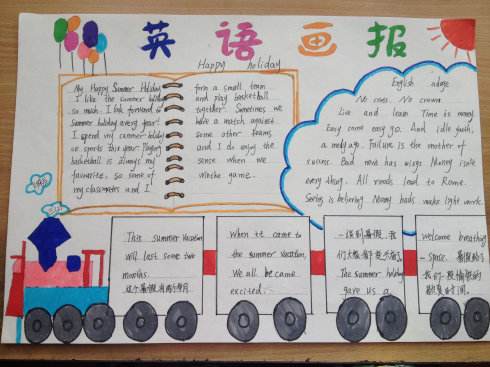 英语画报
Happy holiday
My Happy Summer Holiday
I like the summer holiday
so much. I look forward to
summer holiday every year!
I spend my summer holiday
on sports this year. Playing
basketball is always my
favourite, so some of
my classmates and I
form a small team
and play basketball
together. Sometimes we
have a match against
some other teams
and I do enjoy the
sense when we
win the game.
English adage
No cross, No crown
Live and learn Time is money
Easy come easy go. And idle youth,
a needy age. Failure is the mother of
success. Bad news has wings. Money isn't
everything. All roads lead to Rome.
Seeing is believing. Many hands make light work.
This summer vacation
will last some two
months.
这个暑假有两个月
When it came to
the summer vacation,
We all became
excited.
一说到暑假，我
们大家都
The summer holiday
gave us a
welcome breathing
space. 暑假给了
我们一段愉快的